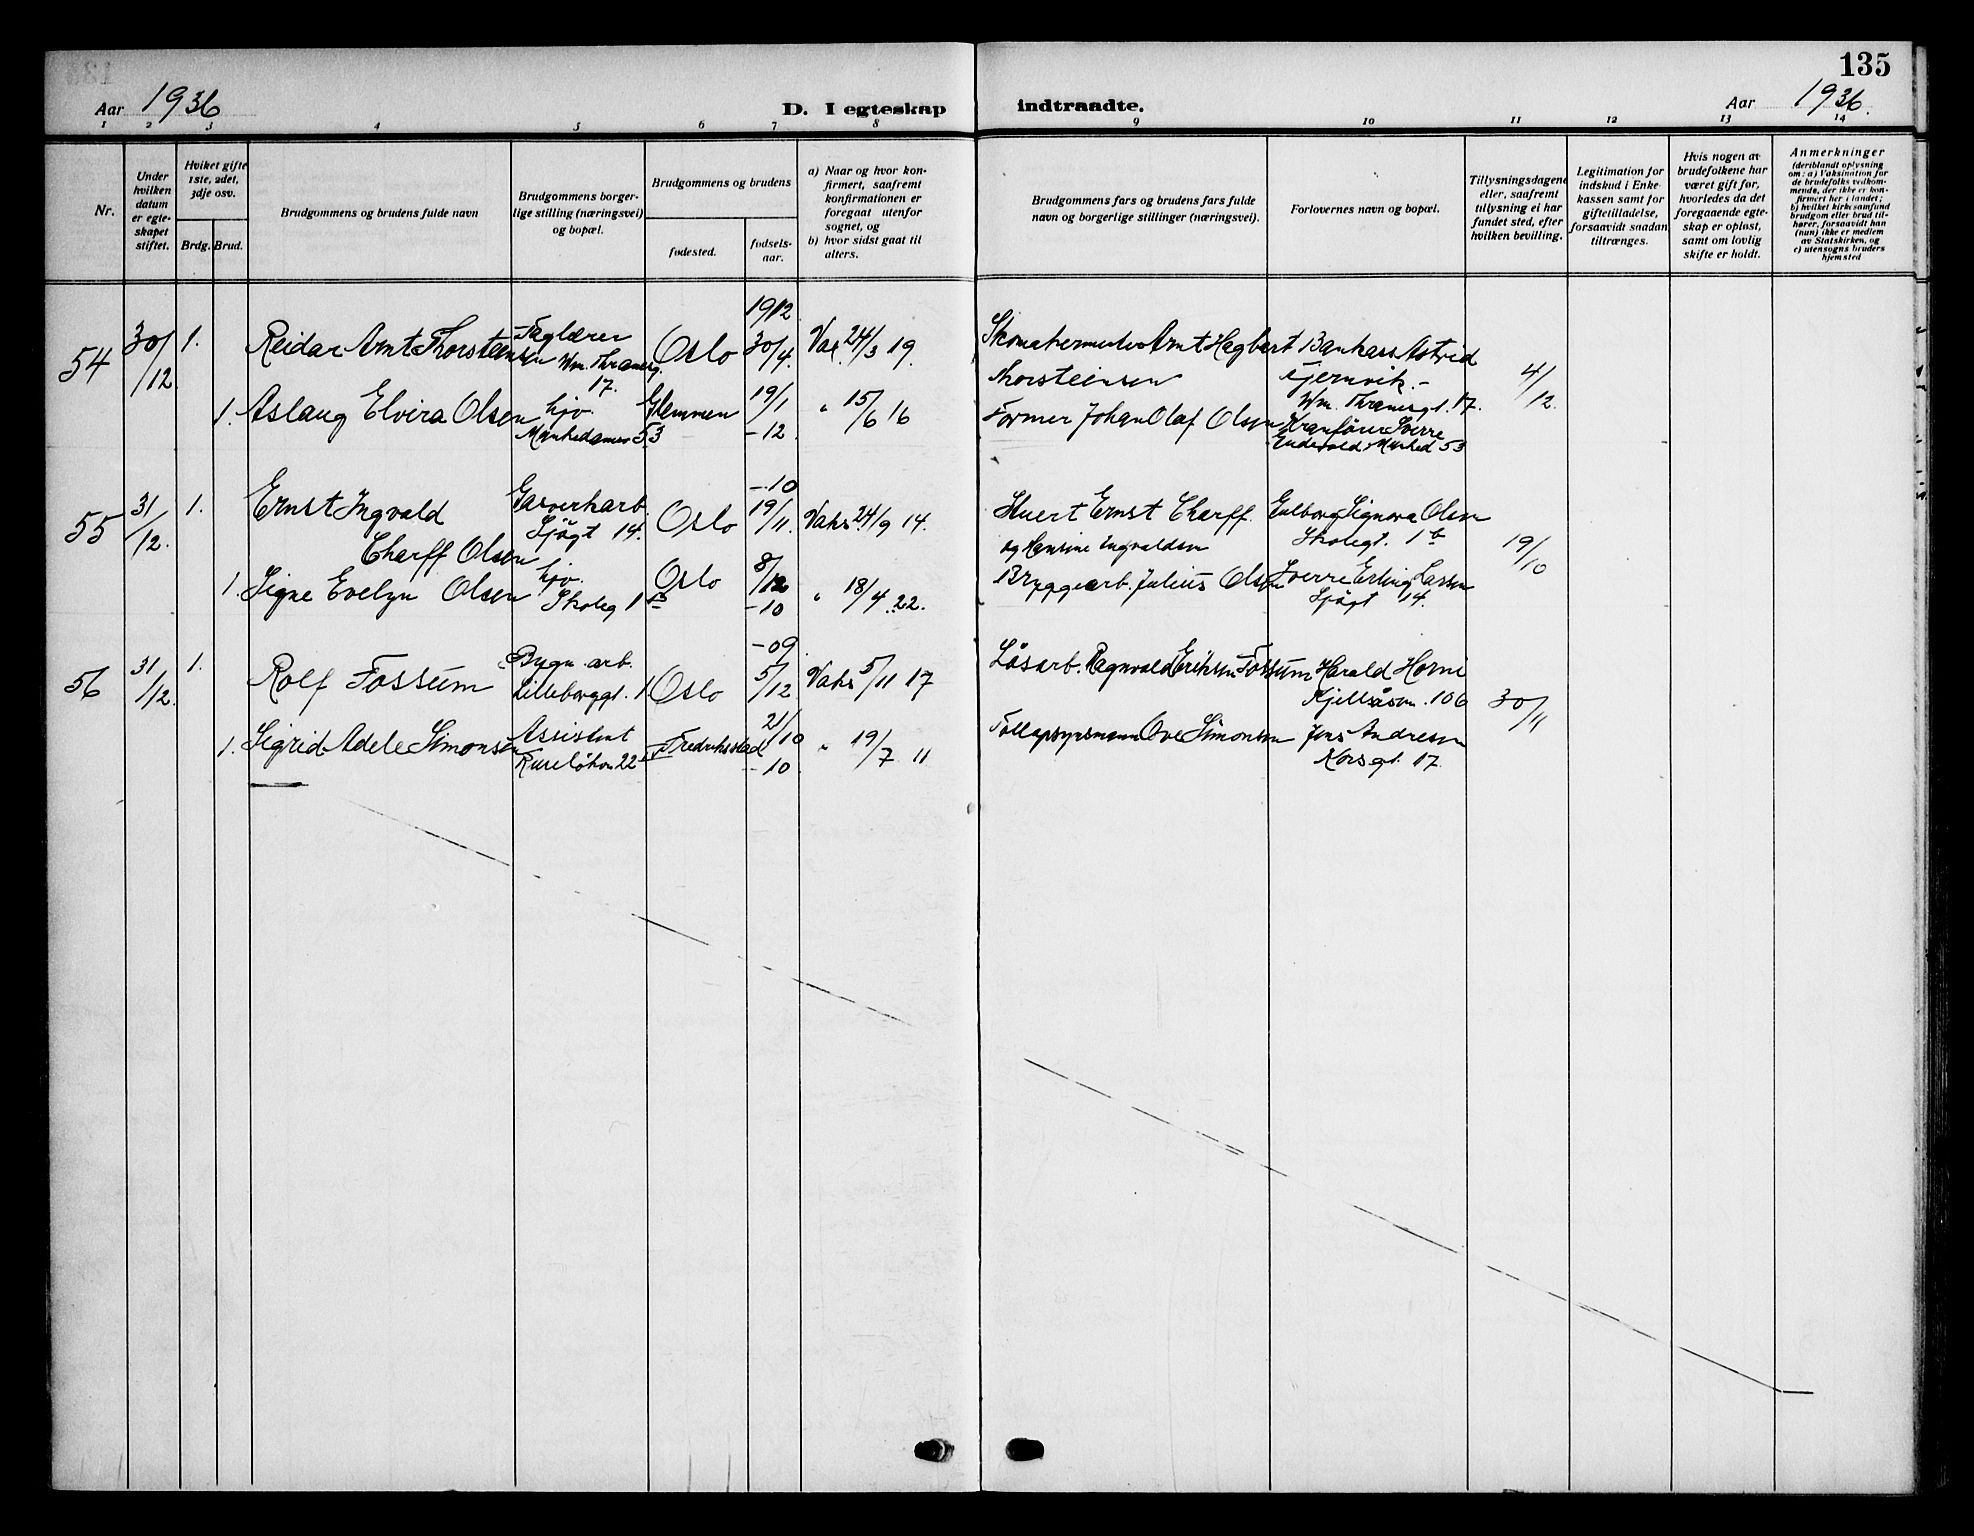 135
Aar 1936
D. I egteskap
indtraadte.
Aar 1936.
1 2 3 4 5 6 7 8 9 10 11 12 13 14
Nr.
Under hvilken datum er egte-skapet stiftet.
Hvilket gifte 1ste, 2det, 3dje osv.
Brdg. Brud.
Brudgommens og brudens fulde navn
Brudgommens borger-lige stilling (næringsvei) og bopæl.
Brudgommens og brudens
fødested.
fødsels-aar.
a) Naar og hvor kon-firmert, saafremt konfirmationen er foregaat utenfor sognet, og
b) hvor sidst gaat til alters.
Brudgommens fars og brudens fars fulde navn og borgerlige stillinger (næringsvei).
Forlovernes navn og bopæl.
Tillysningsdagene eller, saafremt tillysning ei har fundet sted, efter hvilken bevilling.
Legitimation for indskud i Enke-kassen samt for giftetilladelse, forsaavidt saadan tiltrænges.
Hvis nogen av brudefolkene har været gift før, hvorledes da det foregaaende egte-skap er opløst, samt om lovlig skifte er holdt.
Anmerkninger
(deriblandt oplysning om: a) Vaksination for de brudefolks vedkom-mende, der ikke er kon-firmert her i landet; b) hvilket kirkesamfund brudgom eller brud til-hører, forsaavidt han (hun) ikke er medlem av Statskirken, og c) utensogns bruders hjemsted
54 30/12 1. Reidar Arnt Thorsteensen Faglærer Wm. Thranesg. 17. Oslo 1912 30/4 Vax. 24/3 19. Skomakermester Arnt Hagbart Thorsteensen Bankass Astrid Tjernvik.- Wm. Thranesgt. 17. 4/12.
1. Aslaug Elvira Olsen hjv. Munkedamsv 53 Glemmen 19/1 -12 " 15/6 16 Former Johan Olaf Olsen Kranfører Sverre Munked 53
55 31/12. 1. Ernst Ingvald Charff Olsen Gasverkarb. Sjøgt 14. Oslo -10 19/11. Vaks 24/9 14. Ernst Charff og Hansine Ingvaldsen Signora Olsen Skolegt. 1b 19/10
1. Signe Evelyn Olsen hjv. Skoleg 1 B Oslo 8/12 -10 " 18/4 22. Bryggearb. Julius Olsen Sverre Erling Larsen Sjøgt 14.
56 31/12. 1. Rolf Fossum Bygn. arb. Lilleborggt. 1 Oslo -09 5/12 Vaks 5/11 17 Løsarb. Ragnvald Eriksen Fossum Harald Horni Kjelsåsvn. 106 30/11
1. Sigrid Adele Simonsen Assistent Ruseløkvn 22 Fredrikstad 21/10 -10 " 19/7 11 Tollopsynsmann Ove Simonsen Jens Andresen Korsgt. 17